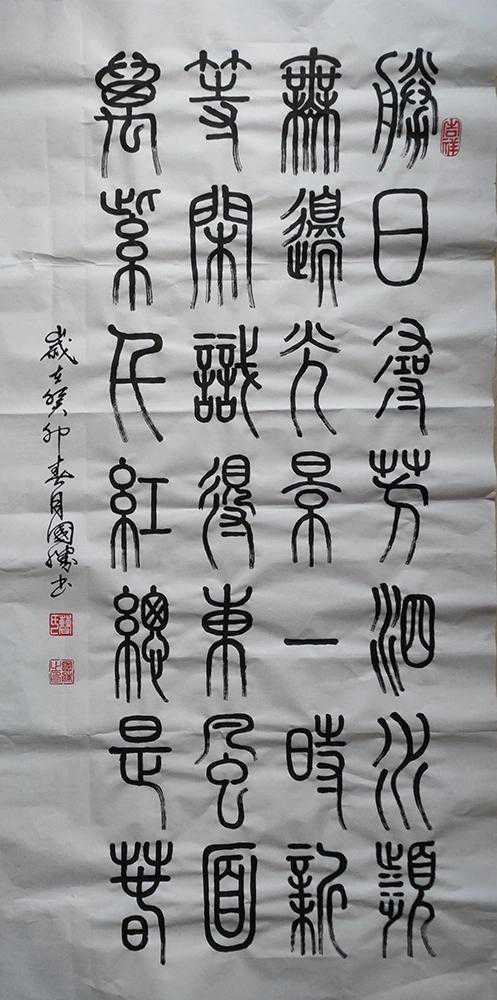 吉祥
勝日尋芳泗水瀕
無邊光景一時新
等閑識得東風面
萬紫千紅總是春
歲在癸卯春月國勝书